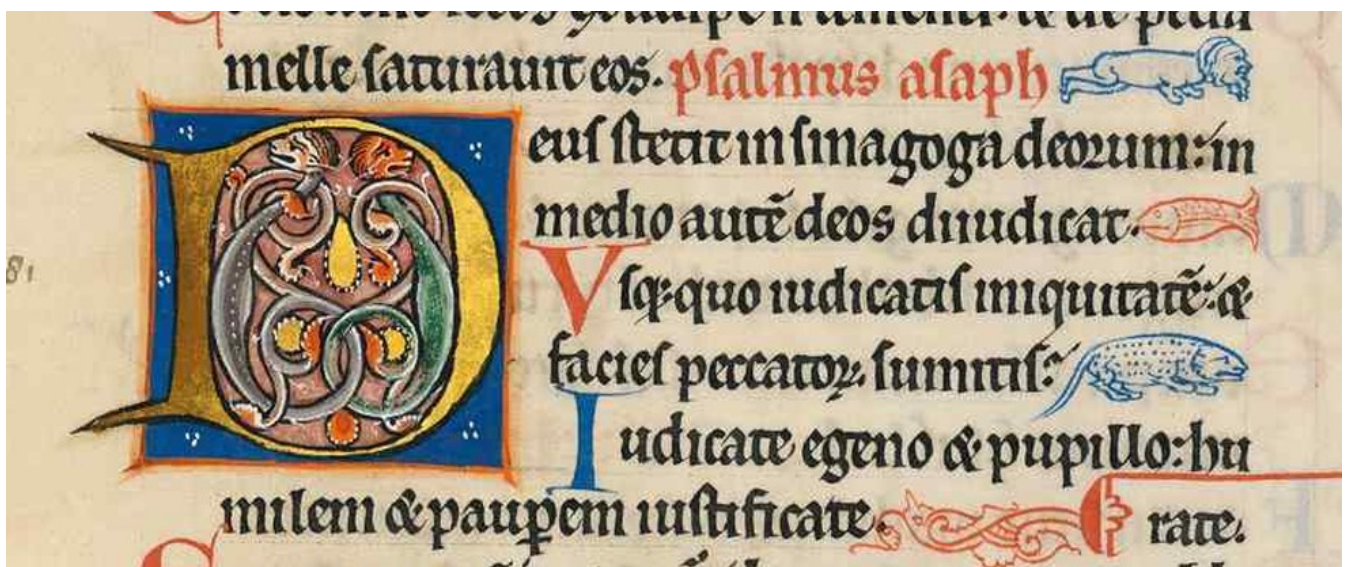 melle saturauit eos. psalmus asaph
Deus stetit in sinagoga deorum: in
medio autē deos diiudicat.
Vsq; quo iudicatis iniquitatē: &
facies peccatoꝝ sumitis?
Iudicate egeno & pupillo: hu
milem & paupem iustificate. Erate.